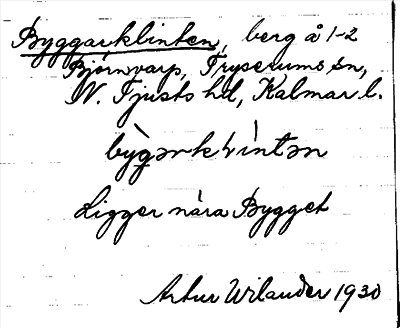 Byggarklinten, berg å 1-2
Björnvarp, Tryserums sn,
N. Tjusts hd, Kalmar l.
by̆gərklìntən
Ligger nära Bygget
Artur Wilander 1930